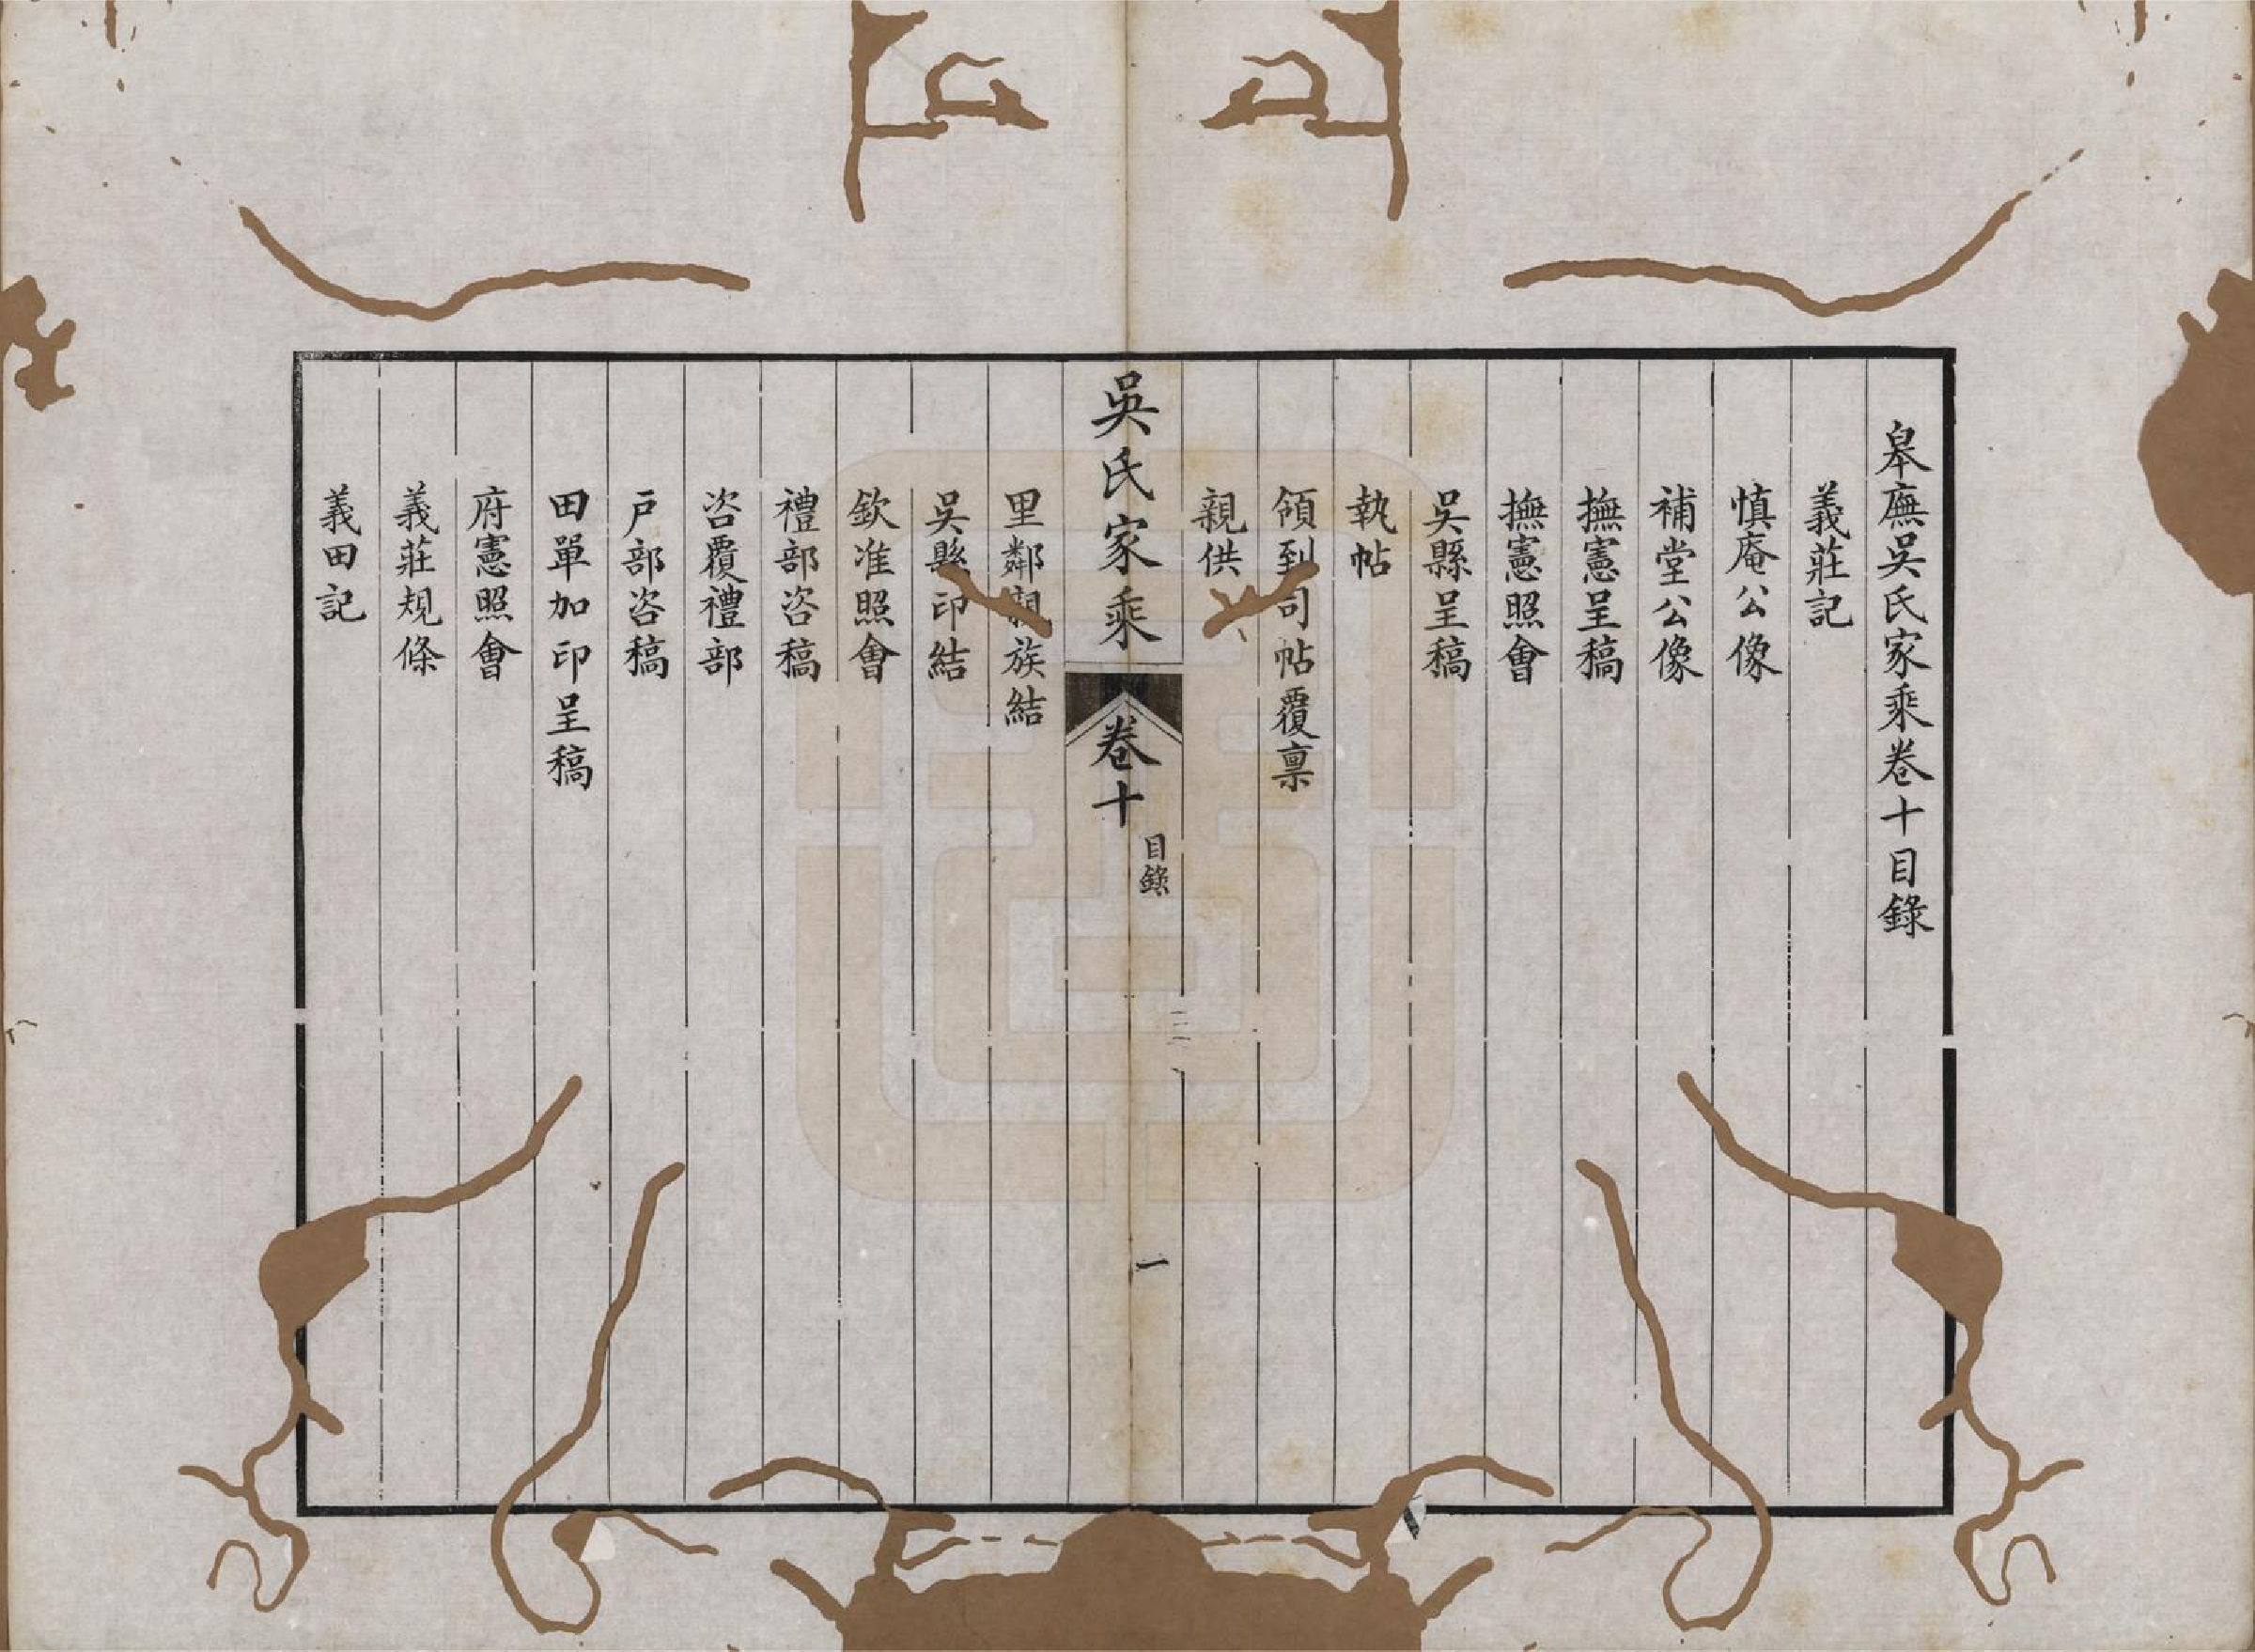 皋廡吳氏家乘卷十目錄
義莊記
慎庵公像
補堂公像
撫憲呈稿
撫憲照會
吳縣呈稿
執帖
領到司帖覆稟
親供
吳氏家乘
卷十
目錄
一
里鄰親族結
吳縣印結
欽准照會
禮部咨稿
咨覆禮部
戶部咨稿
田單加印呈稿
府憲照會
義莊規條
義田記